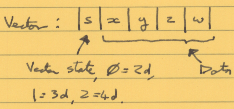 Vector : | s | x | y | z | w |
Vector state, Ø = 2d, Data
1 = 3d, 2 = 4d.